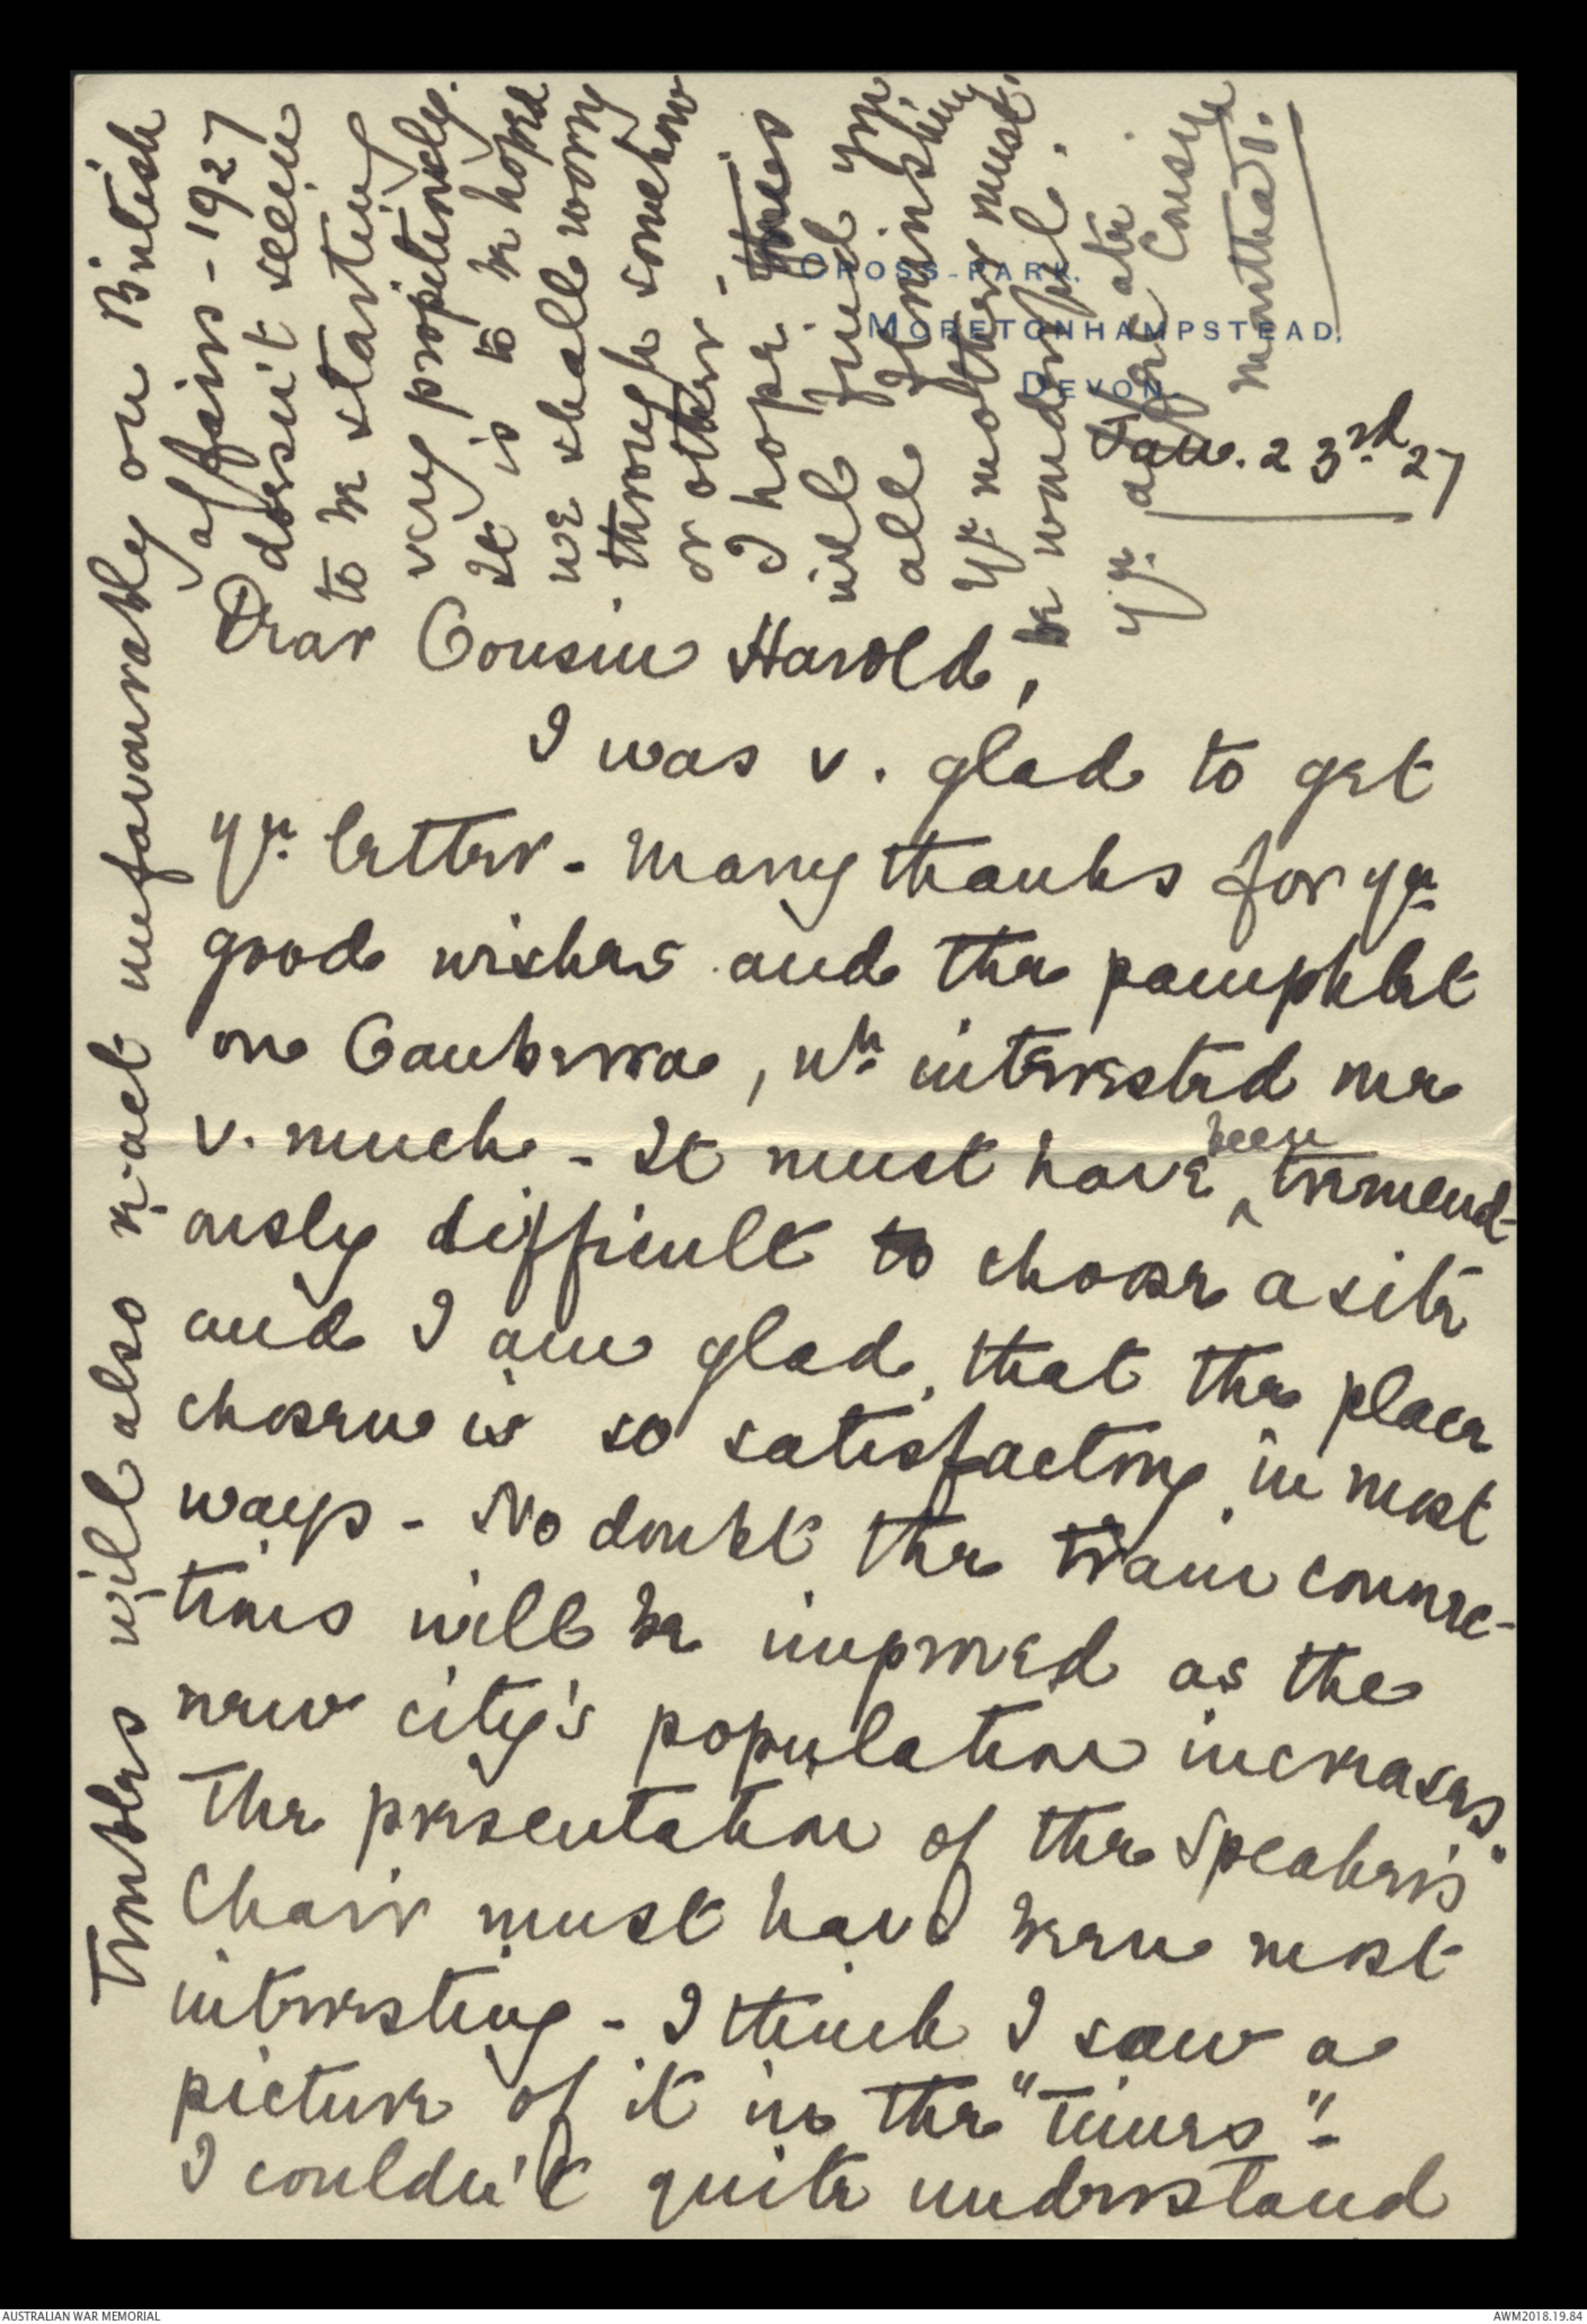 CROSS-PARK.
MORETONHAMPSTEAD.
DEVON.
Jan. 23rd 27
Dear Cousin Harold,
I was v. glad to get
yr. letter - Many thanks for yr.
good wishes and the pamphlet
on Canberra, wh interested me
v. much - It must have been tremend-
ously difficult to choose a site
and I am glad that the place
chosen is so satisfactory in most
ways - No doubt the train connec-
tions will be improved as the
new city's population increases.
The presentation of the Speaker's
Chair must have been most
interesting - I think I saw a
picture of it in the "Times" -
I couldn't quite understand
Troubles will also react unfavourably on British
affairs - 1927
doesn't seem
to be starting
very propitiously.
It is to be hoped
we shall worry
through somehow
or other -
I hope this
will find you
all flourishing
Yr mother must
be wonderful.
Yr. affec ate Cousin
Martha
AUSTRALIAN WAR MEMORIAL
AWM2018.19.84